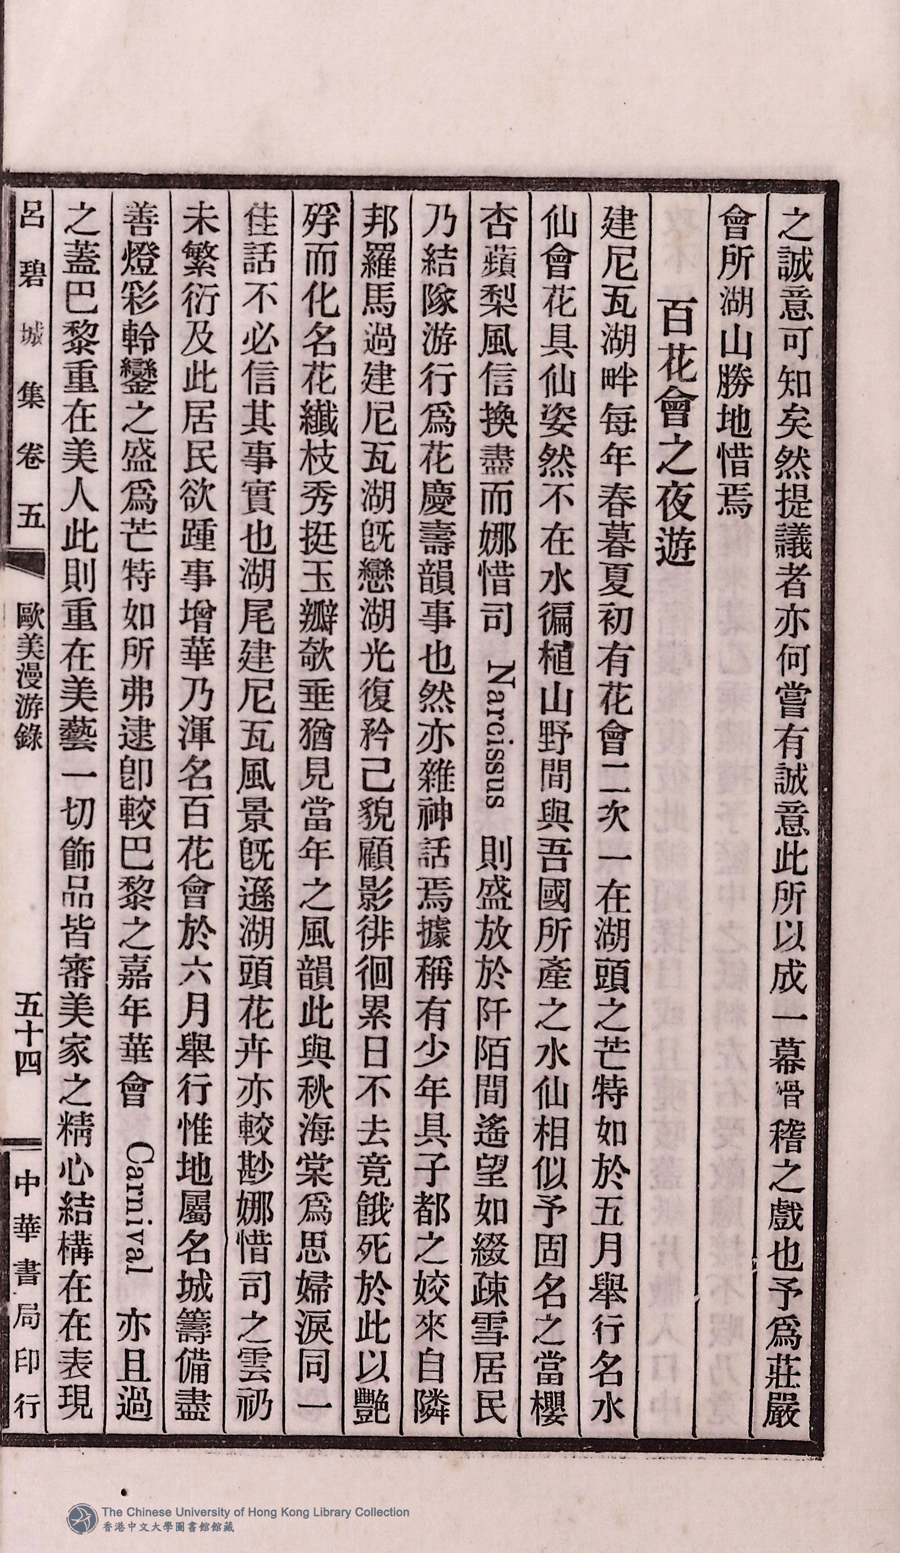 之誠意可知矣然提議者亦何嘗有誠意此所以成一幕滑稽之戲也予爲莊嚴
會所湖山勝地惜焉
百花會之夜遊
建尼瓦湖畔每年春暮夏初有花會二次一在湖頭之芒特如於五月舉行名水
仙會花具仙姿然不在水徧植山野間與吾國所產之水仙相似予固名之當櫻
杏蘋梨風信換盡而娜惜司 Narcissus 則盛放於阡陌間遙望如綴疎雪居民
乃結隊游行爲花慶壽韻事也然亦雜神話焉據稱有少年具子都之姣來自隣
邦羅馬過建尼瓦湖旣戀湖光復矜己貌顧影徘徊累日不去竟餓死於此以艷
殍而化名花纖枝秀挺玉瓣欹垂猶見當年之風韻此與秋海棠爲思婦淚同一
佳話不必信其事實也湖尾建尼瓦風景旣遜湖頭花卉亦較尠娜惜司之雲礽
未繁衍及此居民欲踵事增華乃渾名百花會於六月舉行惟地屬名城籌備盡
善燈彩軨鑾之盛爲芒特如所弗逮卽較巴黎之嘉年華會 Carnival 亦且過
之蓋巴黎重在美人此則重在美藝一切飾品皆審美家之精心結構在在表現
呂碧城集卷五 歐美漫游錄 五十四 中華書局印行
The Chinese University of Hong Kong Library Collection
香港中文大學圖書館館藏